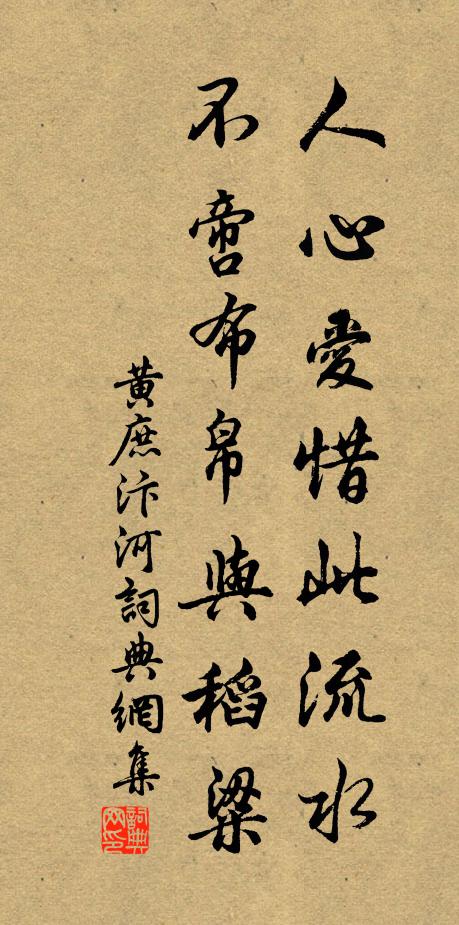 人心愛惜此流水
不啻布帛與稻粱
黃庶汴河詞典網集
詞典網印